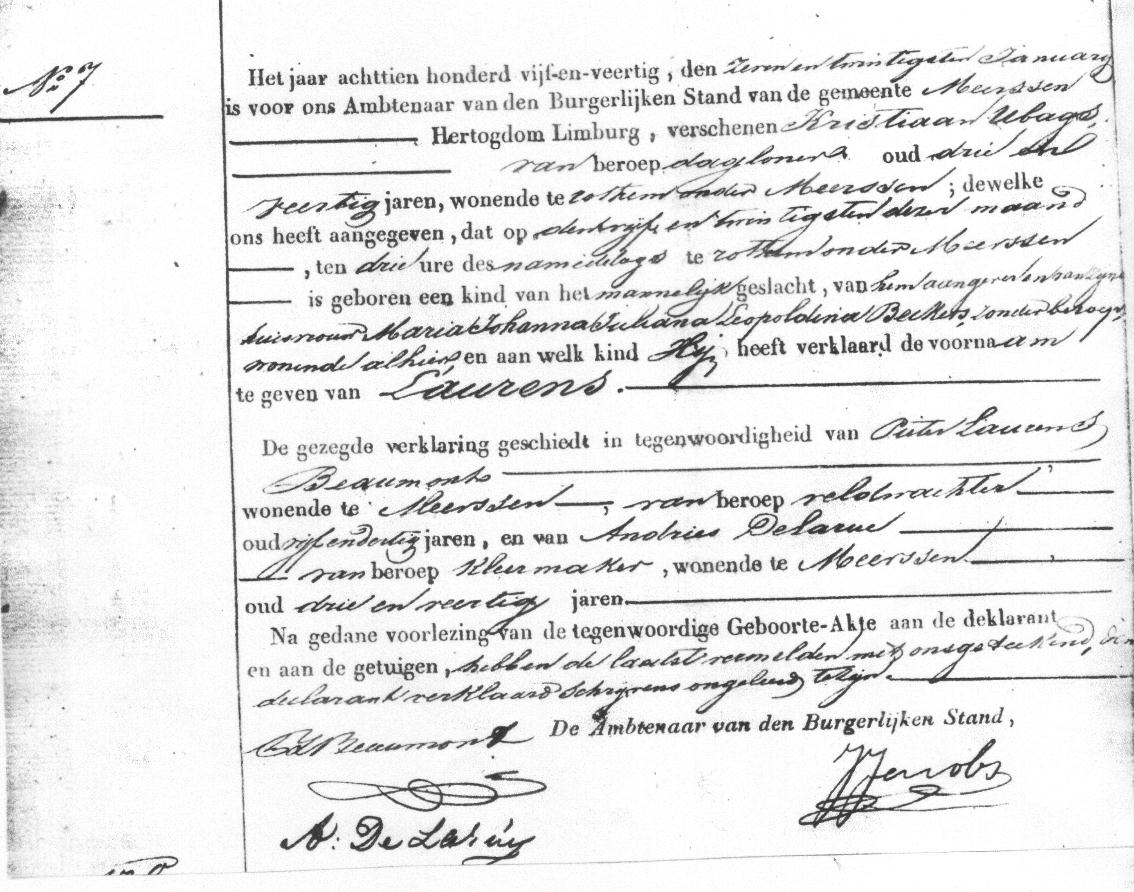 No 7
Het jaar achttien honderd vijf-en-veertig, den zeven en twintigsten January
is voor ons Ambtenaar van den Burgerlijken Stand van de gemeente Meerssen
Hertogdom Limburg, verschenen Kristiaan Ubags,
van beroep dagloner oud drie en
veertig jaren, wonende te rothem onder Meerssen; dewelke
ons heeft aangegeven, dat op den vijf en twintigsten dezer maand
, ten drie ure des namiddags te rothem onder Meerssen
is geboren een kind van het mannelijk geslacht, van hem aangever en van zyne
huisvrouw Maria Johanna Juliana Leopoldina Beckers, zonder beroep,
wonende alhier, en aan welk kind Hij heeft verklaard de voornaam
te geven van Laurens.
De gezegde verklaring geschiedt in tegenwoordigheid van Pieter Laurens
Beaumont
wonende te Meerssen, van beroep veldwachter
oud vijf en dertig jaren, en van Andries Delarue
van beroep kleermaker, wonende te Meerssen
oud drie en veertig jaren
Na gedane voorlezing van de tegenwoordige Geboorte-Akte aan de deklarant
en aan de getuigen, hebben de laatst vermelden met ons geteekend, den
declarant verklaard schryvens ongeleerd te zijn.
De Ambtenaar van den Burgerlijken Stand,
Beaumont
JJacobs
A: De Laruy